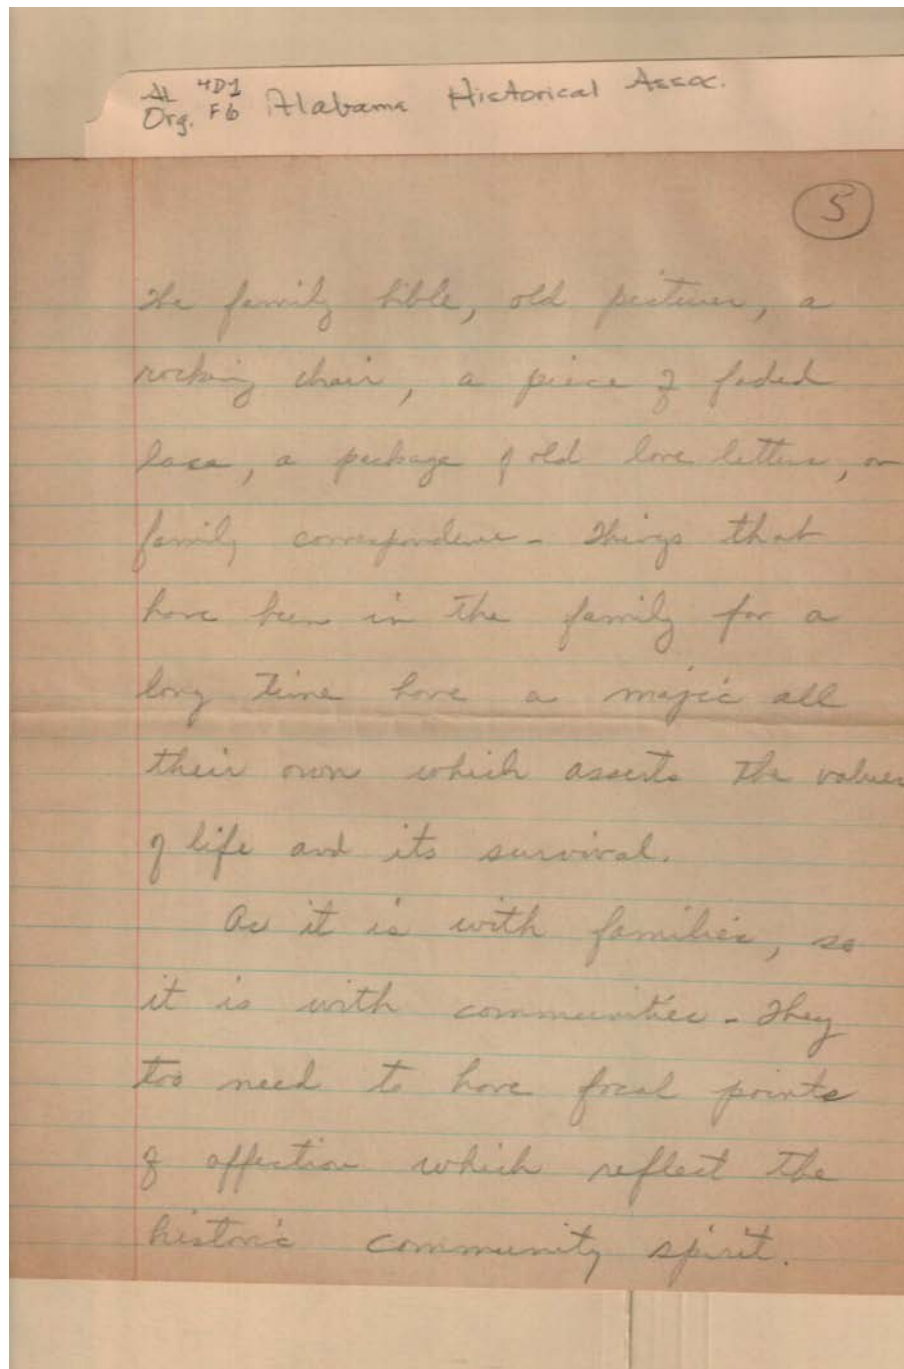 AL 4D1
Org. F6 Alabama Historical Assoc.
5
The family bible, old pictures, a
rocking chair, a piece of faded
lace, a package of old love letters, or
family correspondence - Things that
have been in the family for a
long time have a majic all
their own which asserts the values
of life and its survival.
As it is with families, so
it is with communities - They
too need to have focal points
of affection which reflect the
historic community spirit.